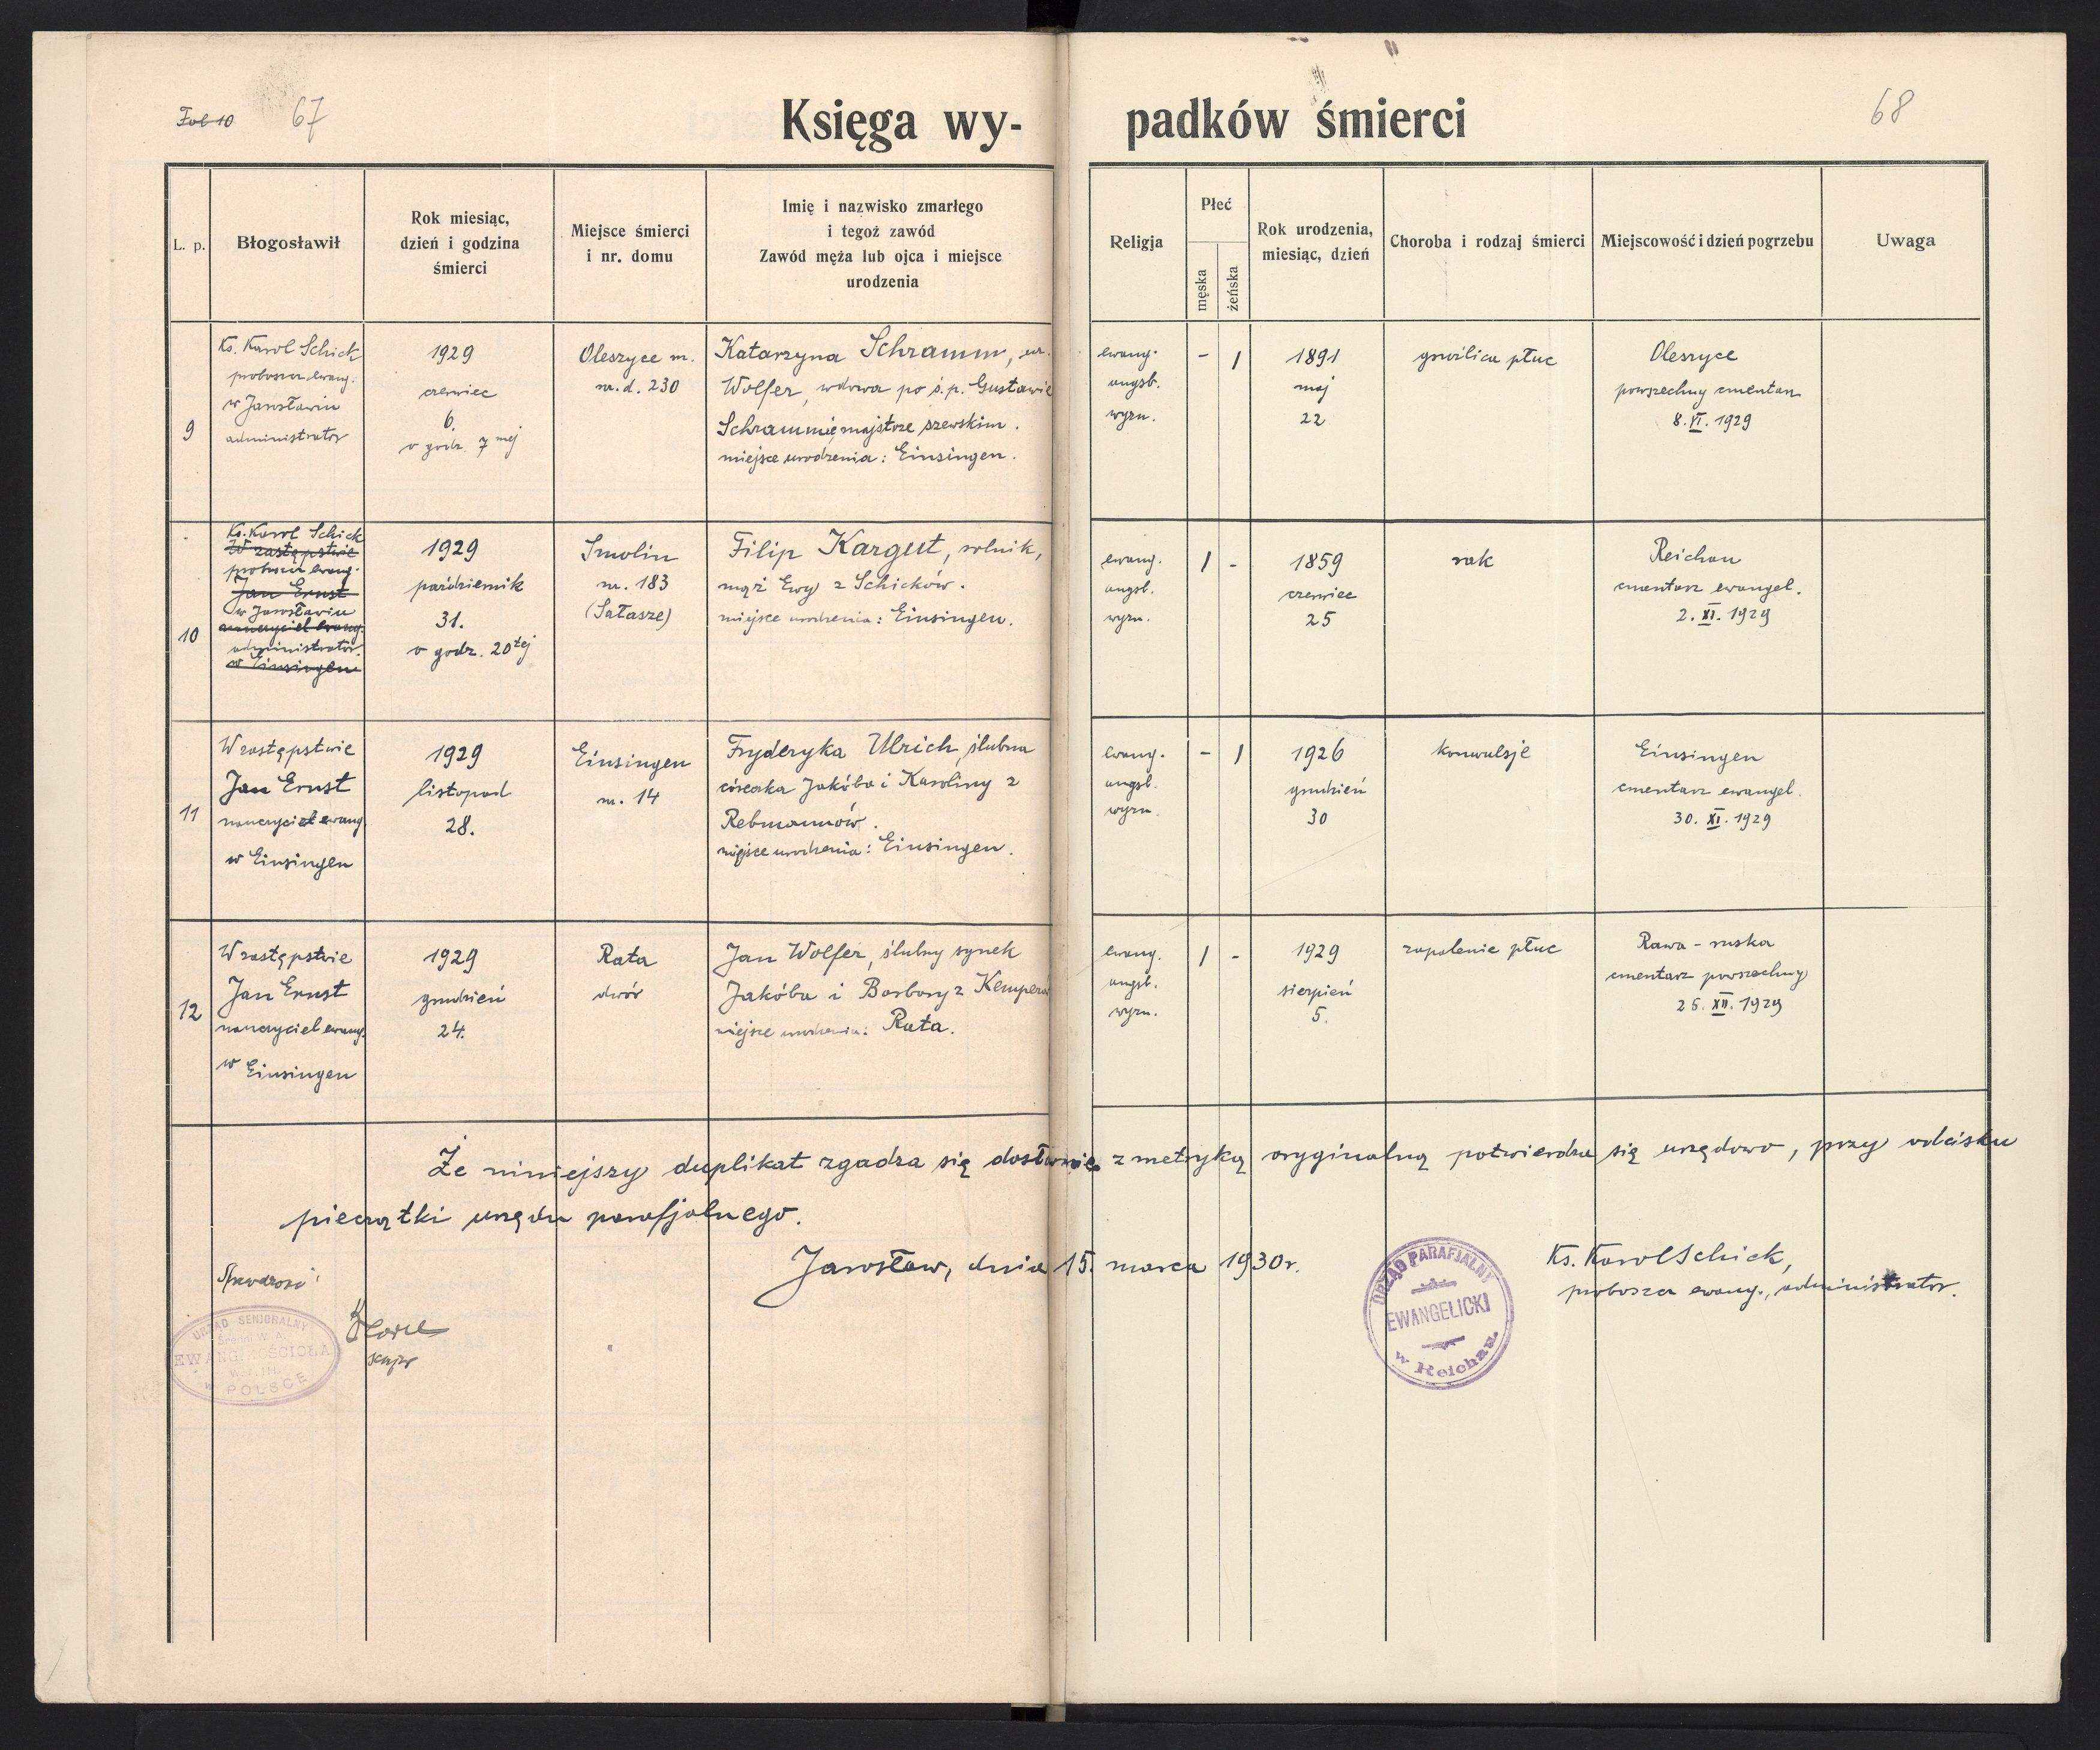 Fol 10
67
Księga wy-
padków śmierci
68
L. p.
Błogosławił
Rok miesiąc,
dzień i godzina
śmierci
Miejsce śmierci
i nr. domu
Imię i nazwisko zmarłego
i tegoż zawód
Zawód męża lub ojca i miejsce
urodzenia
Religja
Płeć
męska
żeńska
Rok urodzenia,
miesiąc, dzień
Choroba i rodzaj śmierci
Miejscowość i dzień pogrzebu
Uwaga
9
Ks. Karol Schick
proboszcz ewang.
w Jarosławiu
administrator
1929
czerwiec
6.
o godz. 7mej
Oleszyce m.
nr. d. 230
Katarzyna Schramm, ur.
Wolfer, wdowa po ś.p. Gustawie
Schrammie, majstrze szewskim.
miejsce urodzenia: Einsingen.
ewang.
augsb.
wyzn.
-
1
1891
maj
22
gruźlica płuc
Oleszyce
powszechny cmentarz
8. VI. 1929
10
Ks. Karol Schick
W zastępstwie
proboszcz ewang.
Jan Ernst
w Jarosławiu
nauczyciel ewang.
administrator.
w Einsingen
1929
październik
31.
o godz. 20tej
Smolin
nr. 183
(Sałasze)
Filip Kargut, rolnik,
mąż Ewy z Schicków.
miejsce urodzenia: Einsingen.
ewang.
augsb.
wyzn.
1
-
1859
czerwiec
25
rak
Reichau
cmentarz ewangel.
2. XI. 1929
11
W zastępstwie
Jan Ernst
nauczyciel ewang.
w Einsingen
1929
listopad
28.
Einsingen
nr. 14
Fryderyka Ulrich, ślubna
córeczka Jakóba i Karoliny z
Rebmannów.
miejsce urodzenia: Einsingen.
ewang.
augsb.
wyzn.
-
1
1926
grudzień
30
konwulsje
Einsingen
cmentarz ewangel.
30. XI. 1929
12
W zastępstwie
Jan Ernst
nauczyciel ewang.
w Einsingen
1929
grudzień
24.
Rata
dwór
Jan Wolfer, ślubny synek
Jakóba i Barbary z Kemperów
miejsce urodzenia: Rata.
ewang.
augsb.
wyzn.
1
-
1929
sierpień
5.
zapalenie płuc
Rawa-ruska
cmentarz powszechny
25. XII. 1929
Że niniejszy duplikat zgadza się dosłownie z metryką oryginalną potwierdza się urzędowo, przy odcisku
pieczątki urzędu parafjalnego.
Jarosław, dnia 15. marca 1930r.
Ks. Karol Schick,
proboszcz ewang., administrator.
URZĄD PARAFJALNY
EWANGELICKI
w Reichau.
URZĄD SENJORALNY
EWANG. KOŚCIOŁA
W POLSCE